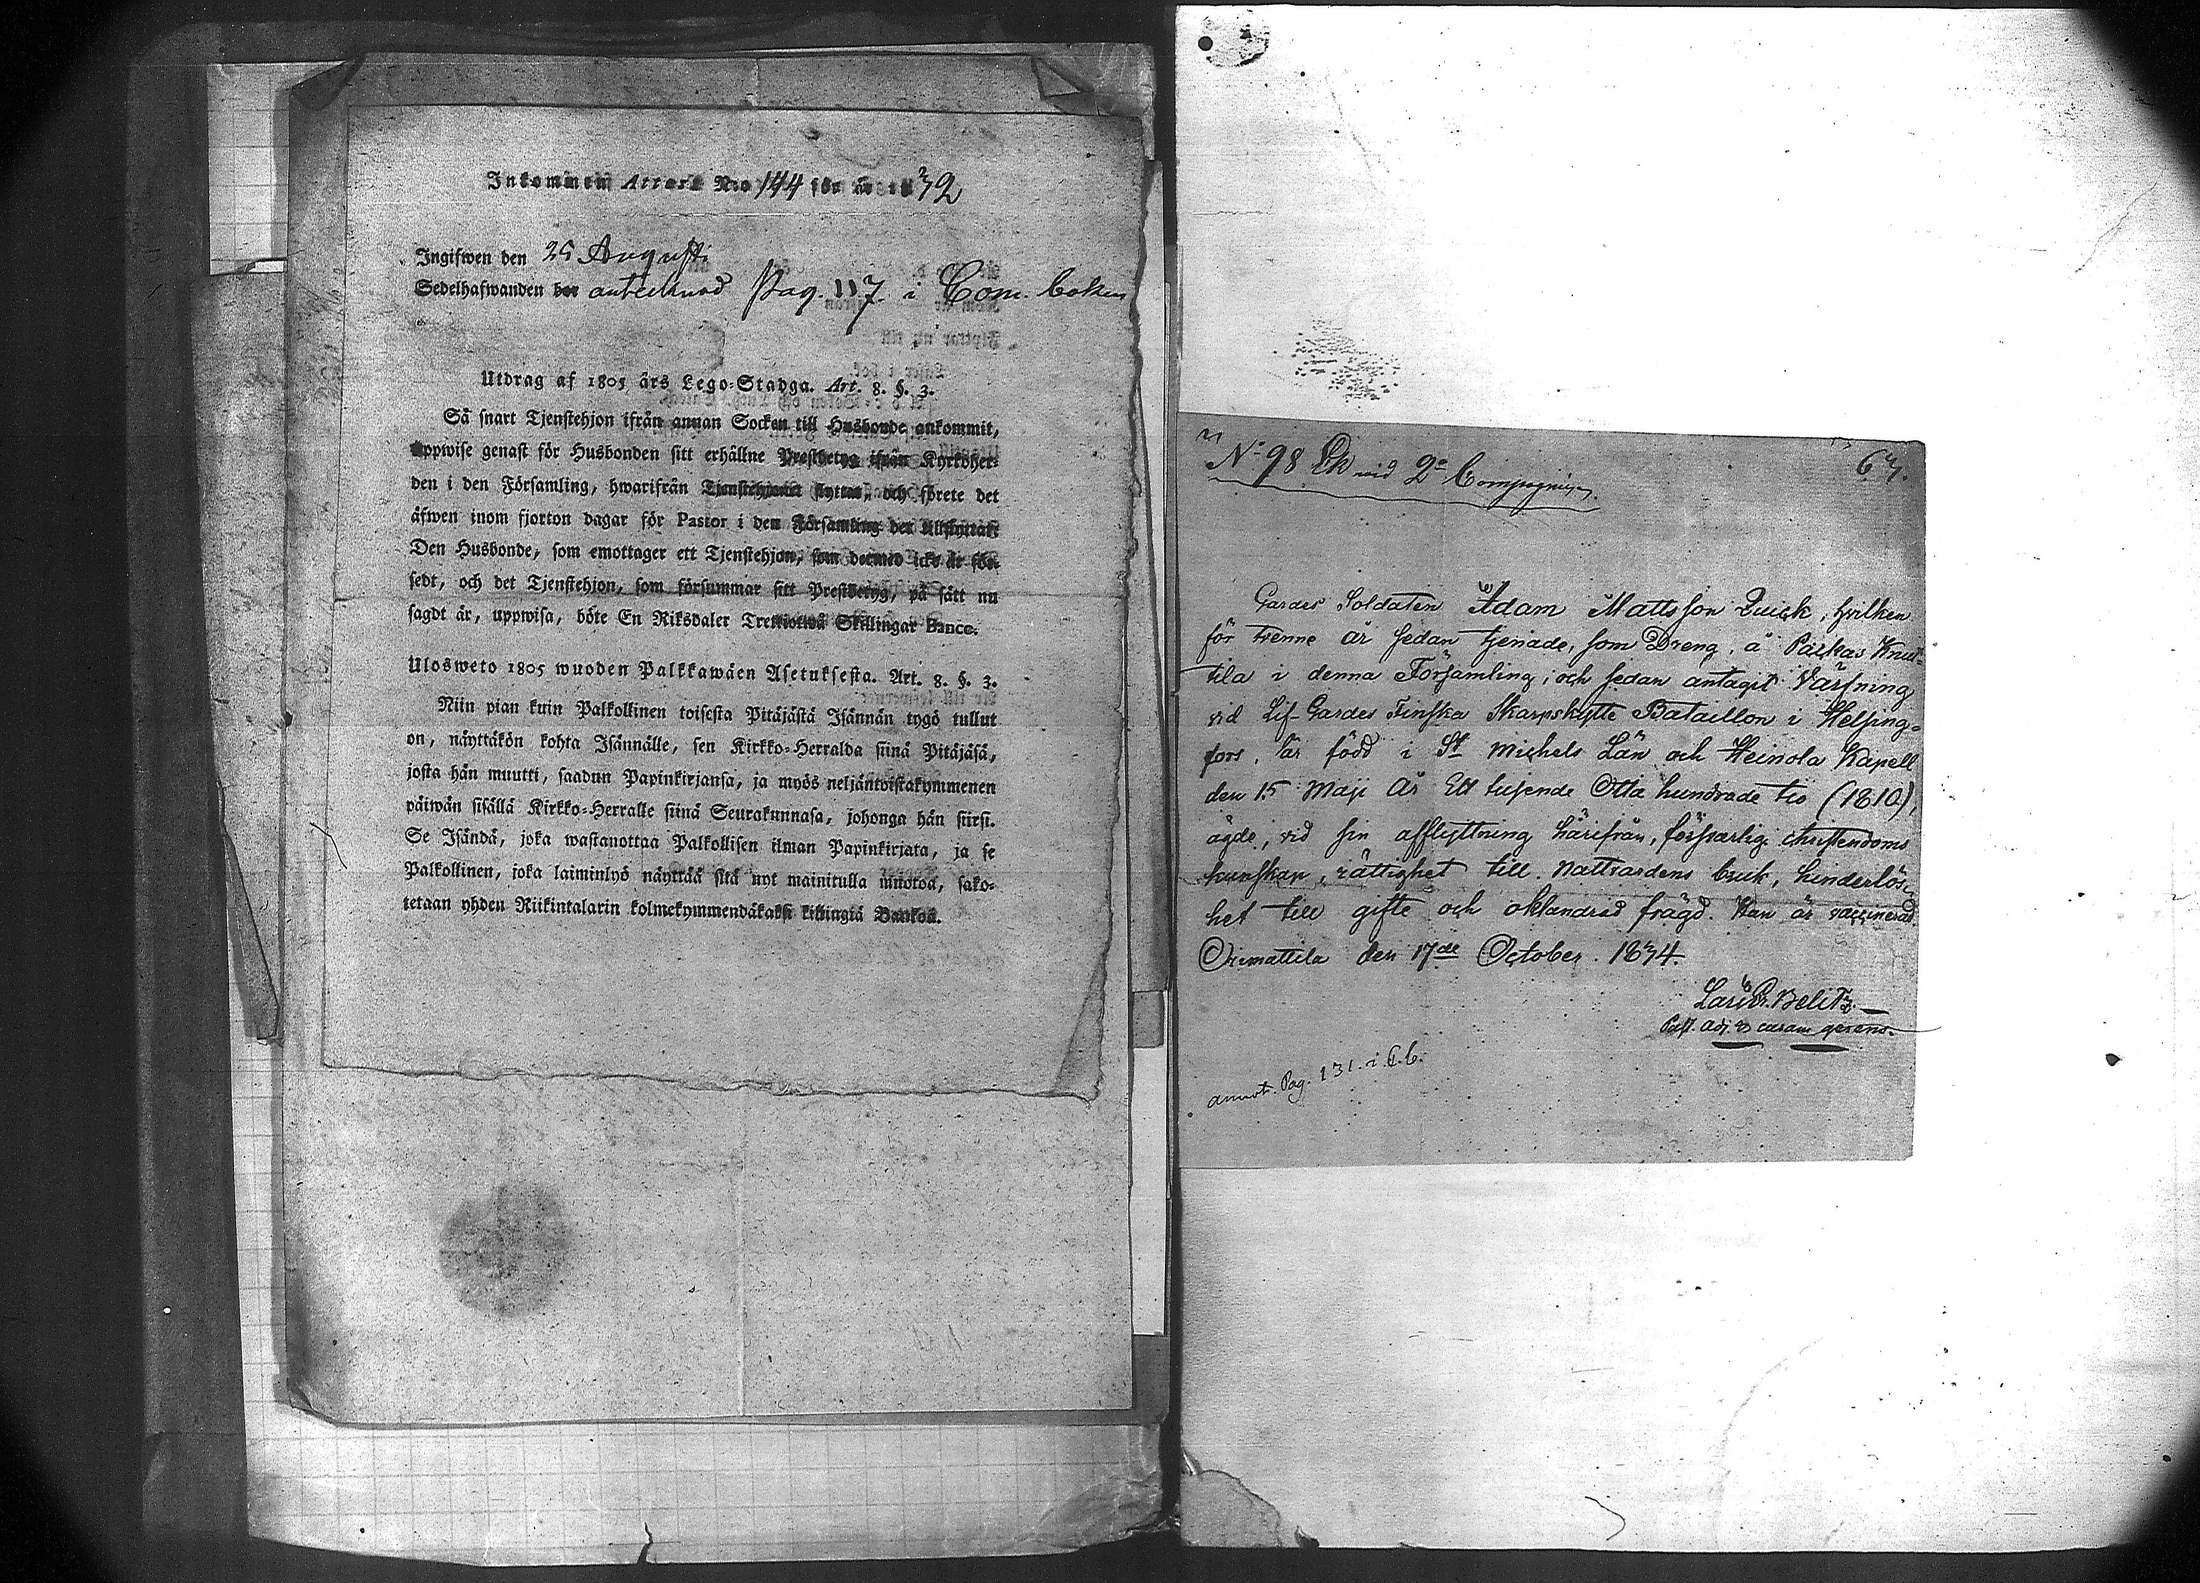 Inkommen Attest N:o 144 för år 1832
Ingifwen den 25 Augusti
Sedelhafwanden har antecknad Pag. 117. i Com. boken
Utdrag af 1805 års Lego-Stadga. Art. 8. §. 3.
Så snart Tjenstehjon ifrån annan Socken till Husbonde ankommit,
uppwise genast för Husbonden sitt erhållne Prestbetyg ifrån Kyrkoher-
den i den Församling, hwarifrån Tjenstehjonet flyttat, och förete det
äfwen inom fjorton dagar för Pastor i den Församling det tillflyttat.
Den Husbonde, som emottager ett Tjenstehjon, som dermed icke är för-
sedt, och det Tjenstehjon, som försummar sitt Prestbetyg, på sätt nu
sagdt är, uppwisa, böte En Riksdaler Trettiotwå Skillingar Banco.
Ulosweto 1805 wuoden Palkkawäen Asetuksesta. Art. 8. §. 3.
Niin pian kuin Palkollinen toisesta Pitäjästä Isännän tygö tullut
on, näyttäkön kohta Isännälle, sen Kirkko-Herralda siinä Pitäjäsä,
josta hän muutti, saadun Papinkirjansa, ja myös neljäntoistakymmenen
päiwän sisällä Kirkko-Herralle siinä Seurakunnasa, johonga hän siirsi.
Se Isändä, joka wastanottaa Palkollisen ilman Papinkirjata, ja se
Palkollinen, joka laiminlyö näyttää sitä nyt mainitulla muotoa, sako-
tetaan yhden Riikintalarin kolmekymmendäkaksi killingiä Bankoa.
N:o 98 Ek vid 2:a Compagnien.
67.
Gardes Soldaten Adam Mattsson Quick, hvilken
för trenne år sedan tjenade, som Dreng, å Paikas Knut-
tila i denna Församling, och sedan antagit Värfning
vid Lif-Gardes Finska Skarpskytte Bataillon i Helsing-
fors, är född i St Michels Län och Heinola Kapell
den 15 Maji År Ett tusende Otta hundrade tio (1810),
ägde, vid sin afflyttning härifrån, försvarlig christendoms
kunskap, rättighet till Nattvardens bruk, hinderlös-
het till gifte och oklandrad frägd. Han är vaccinerad.
Orimattila den 17de October. 1834.
Belitz.
Past. Adj. & curam gerens.
annot. Pag. 131. i C.b.